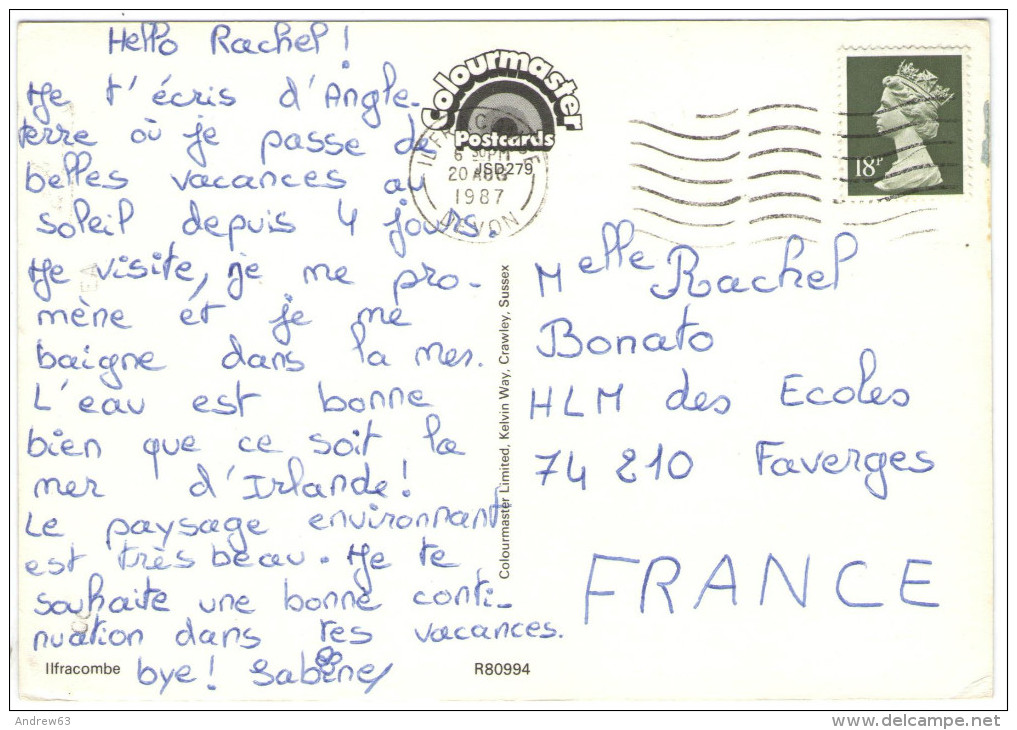 Hello Rachel !
Je t'écris d'Angle-
terre où je passe de
belles vacances au
soleil depuis 4 jours.
Je visite, je me pro-
mène et je me
baigne dans la mer.
L'eau est bonne
bien que ce soit la
mer d'Irlande!
Le paysage environnant
est très beau. Je te
souhaite une bonne conti-
nuation dans tes vacances.
bye! Sabine
Ilfracombe
Colourmaster
Postcards
JSD279
6 30 PM
20 AUG
1987
DEVON
18P
Colourmaster Limited, Kelvin Way, Crawley, Sussex
Melle Rachel
Bonato
HLM des Ecoles
74 210 Faverges
FRANCE
R80994
Andrew63
delcampe.net